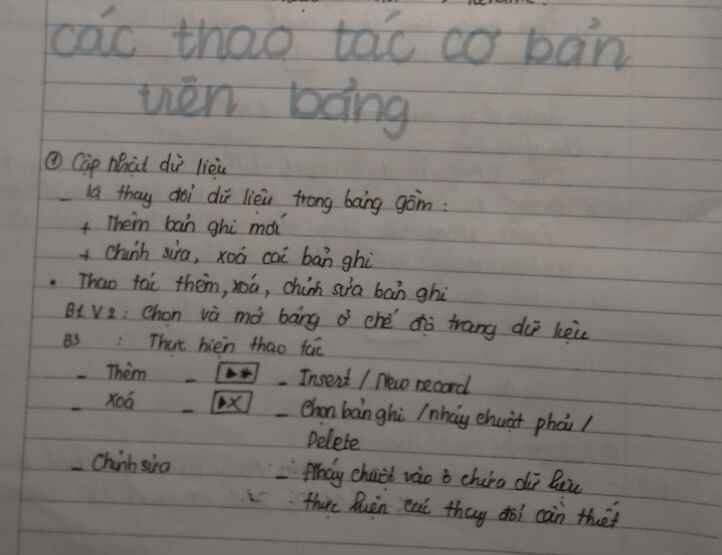 các thao tác cơ bản
trên bảng
① Cập nhật dữ liệu
- là thay đổi dữ liệu trong bảng gồm:
+ Thêm bản ghi mới
+ chỉnh sửa, xoá các bản ghi
• Thao tác thêm, xoá, chỉnh sửa bản ghi
B1 V 2: Chọn và mở bảng ở chế độ trang dữ liệu
B3 : Thực hiện thao tác
- Thêm - [▶*] - Insert / New record
- Xoá - [▶X] - Chọn bản ghi / nháy chuột phải /
Delete
- Chỉnh sửa - Nháy chuột vào ô chứa dữ liệu
: thực hiện các thay đổi cần thiết